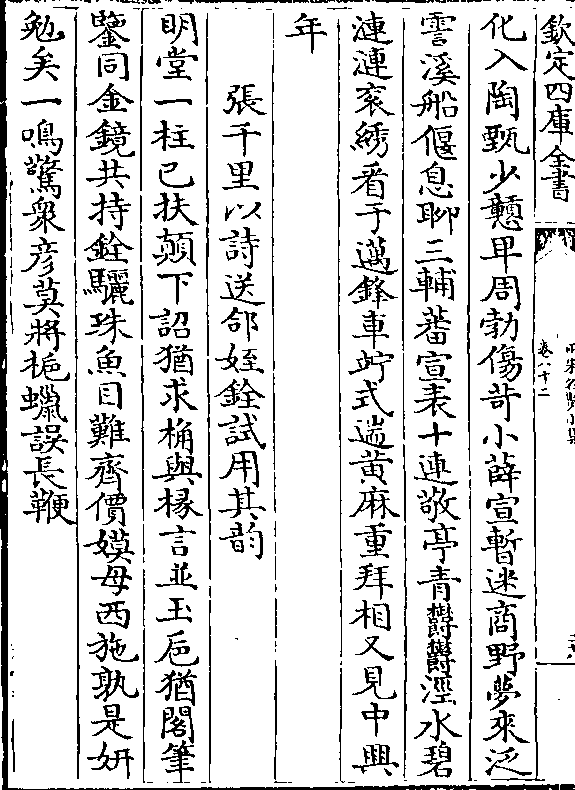 欽定四庫全書
兩宋名賢小集
卷八十二
化入陶甄少戇卑周勃傷苛小薛宣暫迷商野夢來泛
霅溪船偃息聊三輔蕃宣表十連敬亭青欝欝涇水碧
漣漣衮綉看于邁鋒車竚式遄黄麻重拜相又見中興
年
張千里以詩送郃姪銓試用其韵
明堂一柱已扶顛下詔猶求桷與椽言並玉巵猶閣筆
鑒同金鏡共持銓驪珠魚目難齊價嫫母西施孰是妍
勉矣一鳴驚衆彦莫將梔蠟誤長鞭